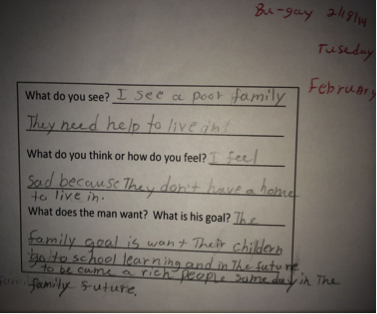 Bu-gay 2/18/14
Tuseday
February
What do you see? I see a poor family
They need help to live in
What do you think or how do you feel? I feel
sad because They don't have a home
to live in.
What does the man want? What is his goal? The
family goal is want Their childern
go to school learning and in The future
to be came a rich people same day in The
family future.